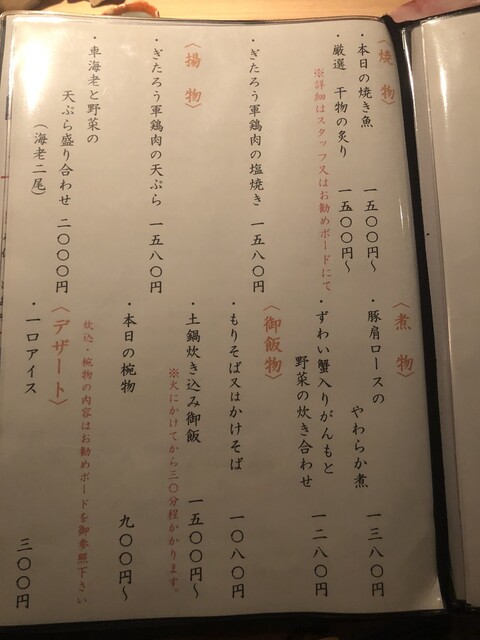 〈焼物〉
・本日の焼き魚 一五〇〇円～
・厳選 干物の炙り 一五〇〇円～
※詳細はスタッフ又はお勧めボードにて
・ぎたろう軍鶏肉の塩焼き 一五八〇円
〈揚物〉
・ぎたろう軍鶏肉の天ぷら 一五八〇円
・車海老と野菜の
天ぷら盛り合わせ 二〇〇〇円
(海老二尾)
〈煮物〉
・豚肩ロースの
やわらか煮 一三八〇円
・ずわい蟹入りがんもと
野菜の炊き合わせ 一二八〇円
〈御飯物〉
・もりそば又はかけそば 一〇八〇円
・土鍋炊き込み御飯 一五〇〇円～
※火にかけてから三〇分程かかります。
・本日の椀物 九〇〇円～
炊込・椀物の内容はお勧めボードを御参照下さい
〈デザート〉
・一口アイス 三〇〇円